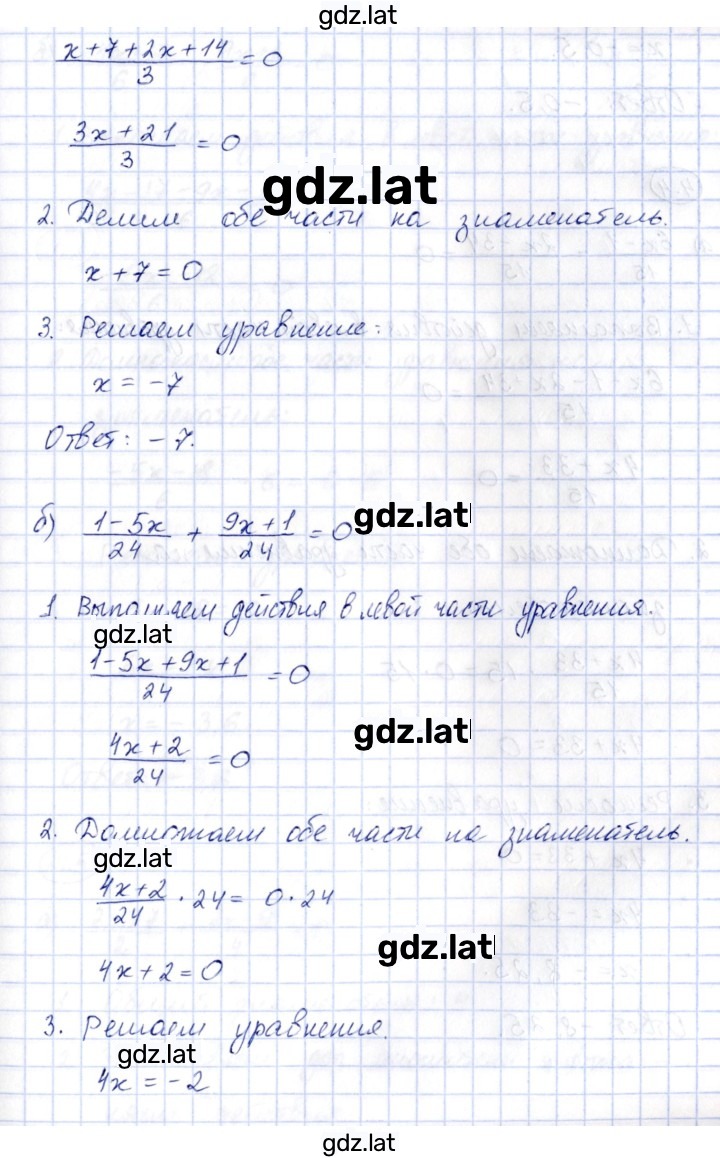 gdz.lat
x+7+2x+14/3=0
3x+21/3=0
gdz.lat
2. Делим обе части на знаменатель.
x+7=0
3. Решаем уравнение:
x=-7
Ответ: -7.
б) 1-5x/24 + 9x+1/24 =0
gdz.lat
1. Выполняем действия в левой части уравнения.
gdz.lat
1-5x+9x+1/24 =0
gdz.lat
4x+2/24 =0
2. Домножаем обе части на знаменатель.
gdz.lat
4x+2/24 · 24= 0·24
gdz.lat
4x+2=0
3. Решаем уравнения.
gdz.lat
4x=-2
gdz.lat